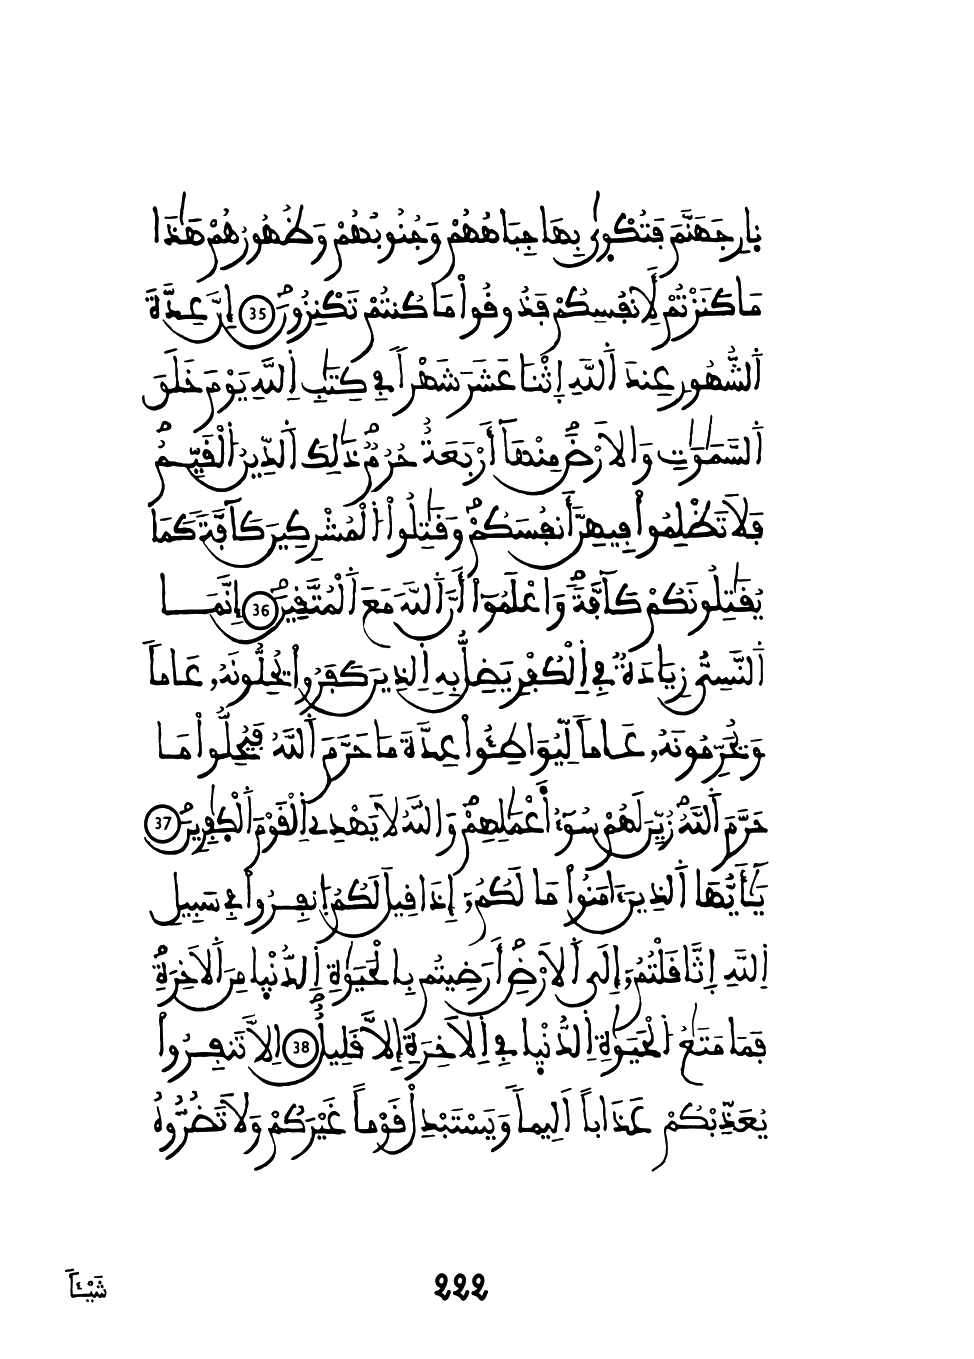 نارِ جَهَنَّمَ فَتُكْوِىٰ بِهَا جِبَاهُهُمْ وَجُنُوبُهُمْ وَظُهُورُهُمْ هَٰذَا
مَا كَنَزْتُمْ لَأَنفُسِكُمْ فَذُوقُواْ مَا كُنتُمْ تَكْنِزُونَ 35 إِنَّ عِدَّةَ
اَلشُّهُورِ عِندَ اَللَّهِ اِثْنَا عَشَرَ شَهْراً فِي كِتَٰبِ اِللَّهِ يَوْمَ خَلَقَ
اَلسَّمَٰوَٰتِ وَالَارْضَ مِنْهَآ أَرْبَعَةٌ حُرُمٌ ذَٰلِكَ اَلدِّينُ اُلْقَيِّمُ
فَلَا تَظْلِمُواْ فِيهِنَّ أَنفُسَكُمْ وَقَٰتِلُواْ اُلْمُشْرِكِينَ كَآفَّةً كَمَا
يُقَٰتِلُونَكُمْ كَآفَّةً وَاعْلَمُوٓاْ أَنَّ اَللَّهَ مَعَ اَلْمُتَّقِينَ 36 إِنَّمَا
اَلنَّسِيُّ زِيَادَةٌ فِي اِلْكُفْرِ يَضِلُّ بِهِ اِلذِينَ كَفَرُواْ يُحِلُّونَهُۥ عَاماً
وَيُحَرِّمُونَهُۥ عَاماً لِّيُوَاطِـُٔواْ عِدَّةَ مَا حَرَّمَ اَللَّهُ فَيُحِلُّواْ مَا
حَرَّمَ اَللَّهُ زُيِّنَ لَهُمْ سُوٓءُ أَعْمَٰلِهِمْ وَاللَّهُ لَا يَهْدِے اِلْقَوْمَ اَلْكَٰفِرِينَ 37
يَٰٓأَيُّهَا اَلذِينَ ءَامَنُواْ مَا لَكُمُۥٓ إِذَا قِيلَ لَكُمُ اِنفِرُواْ فِي سَبِيلِ
اِللَّهِ اِثَّاقَلْتُمُۥٓ إِلَى اَلَارْضِ أَرَضِيتُم بِالْحَيَوٰةِ اِلدُّنْيَا مِنَ اَلَاخِرَةِ
فَمَا مَتَٰعُ اُلْحَيَوٰةِ اِلدُّنْيَا فِي اِلَاخِرَةِ إِلَّا قَلِيلٌ 38 اِلَّا تَنفِرُواْ
يُعَذِّبْكُمْ عَذَاباً اَلِيماً وَيَسْتَبْدِلْ قَوْماً غَيْرَكُمْ وَلَا تَضُرُّوهُ
شَيْـٔاً
222